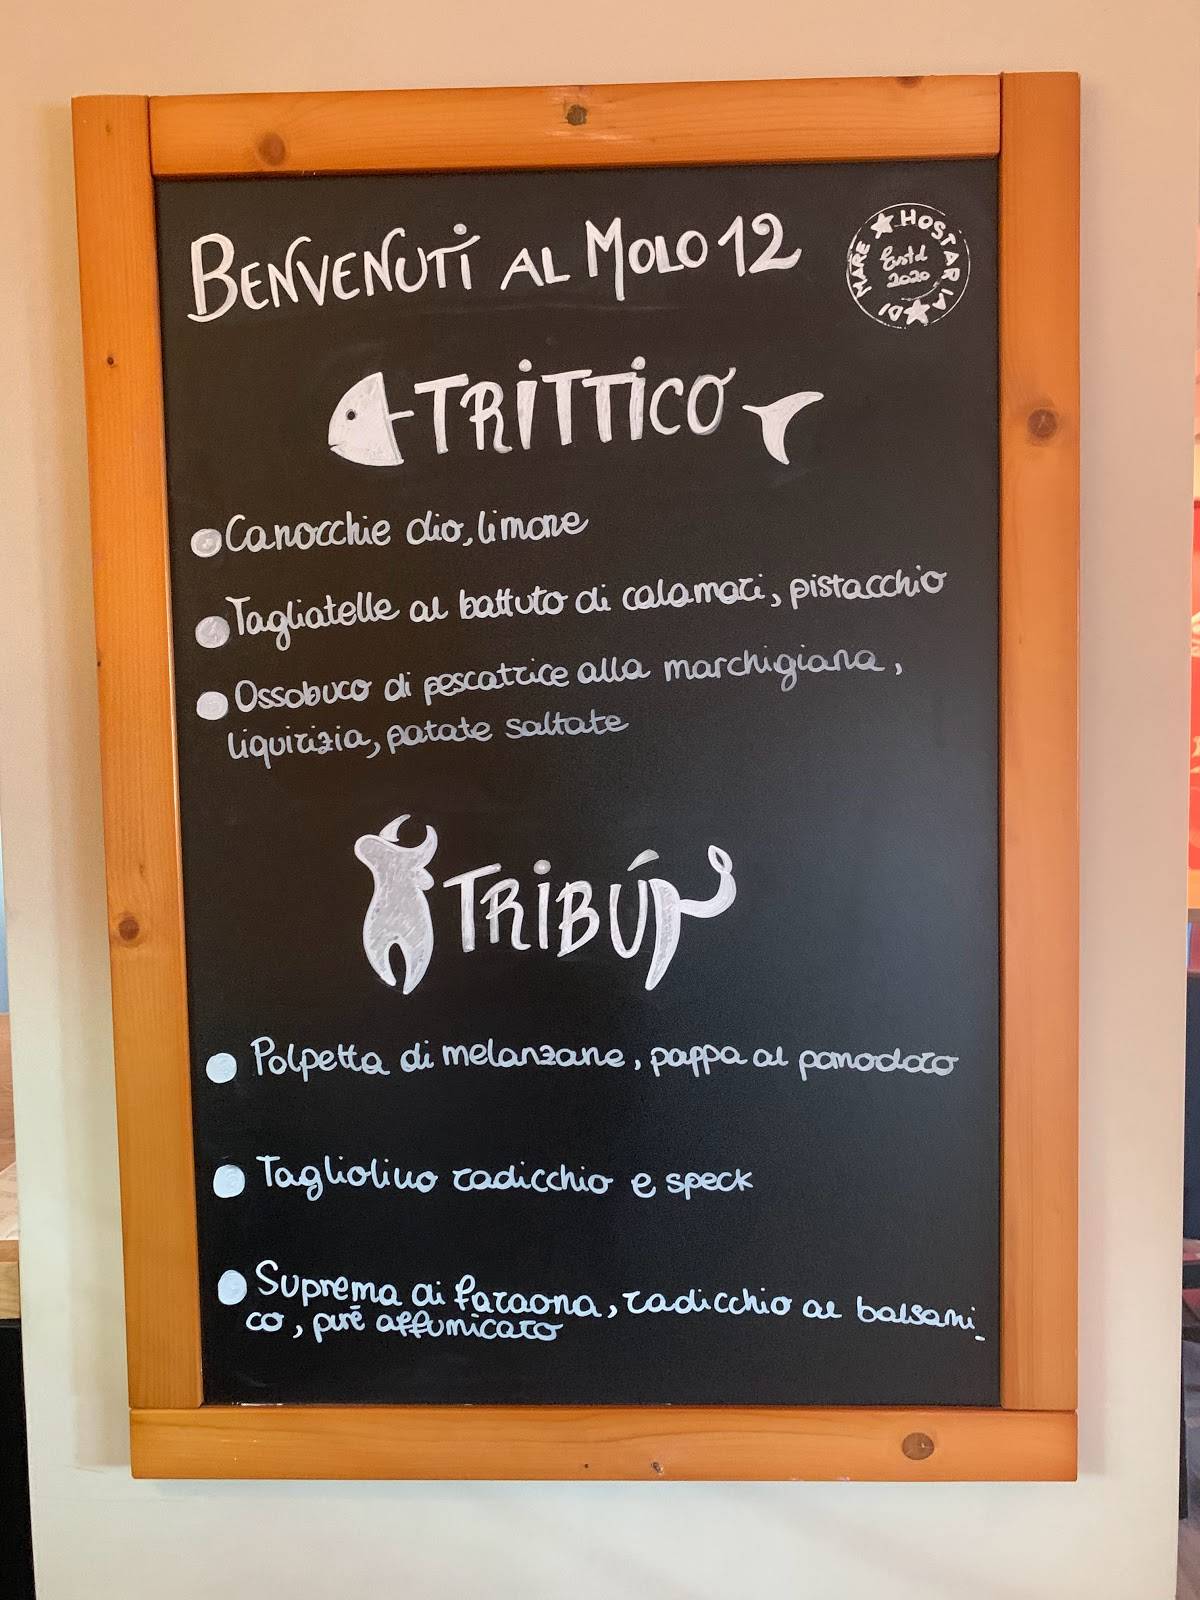 BENVENUTI AL MOLO 12
HOSTARIA DI MARE
Estd
2020
TRITTICO
Canocchie olio, limone
Tagliatelle al battuto di calamari, pistacchio
Ossobuco di pescatrice alla marchigiana,
liquirizia, patate saltate
TRIBÚ
Polpetta di melanzane, pappa al pomodoro
Tagliolino radicchio e speck
Suprema di faraona, radicchio al balsami_
co, purè affumicato